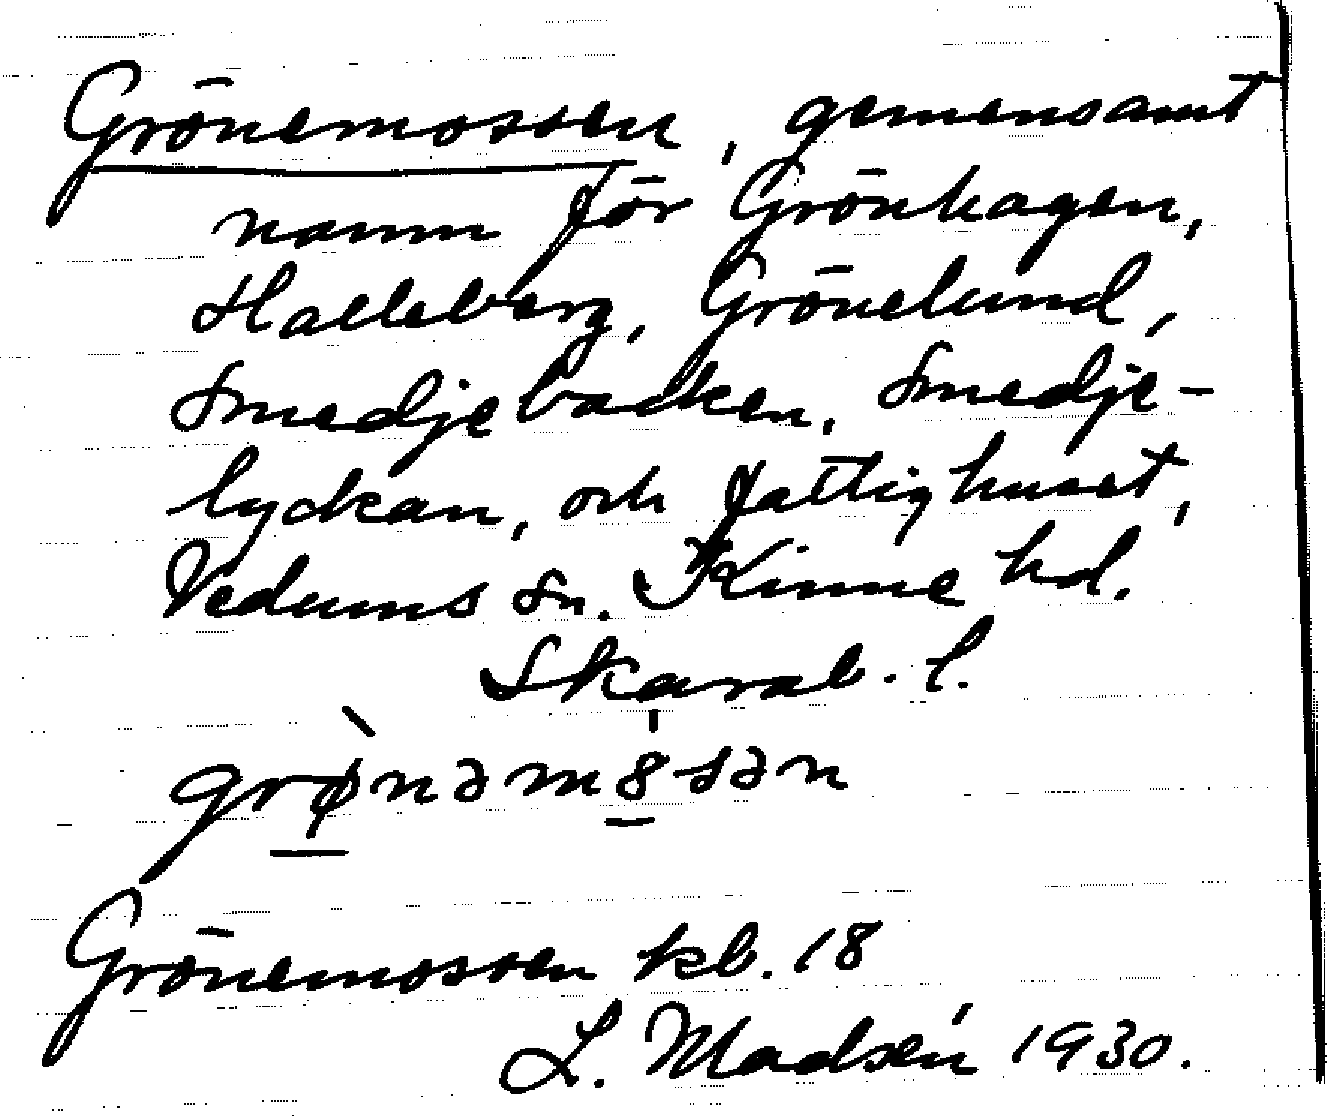 Grönemossen, gemensamt
namn för Grönhagen,
Halleberg, Grönelund,
Smedjebacken, Smedje-
lyckan, och Fattighuset,
Vedums sn. Kinne hd.
Skarab. l.
grø̀nəm8̍sən
Grönemossen kb. 18
L. Madsén 1930.